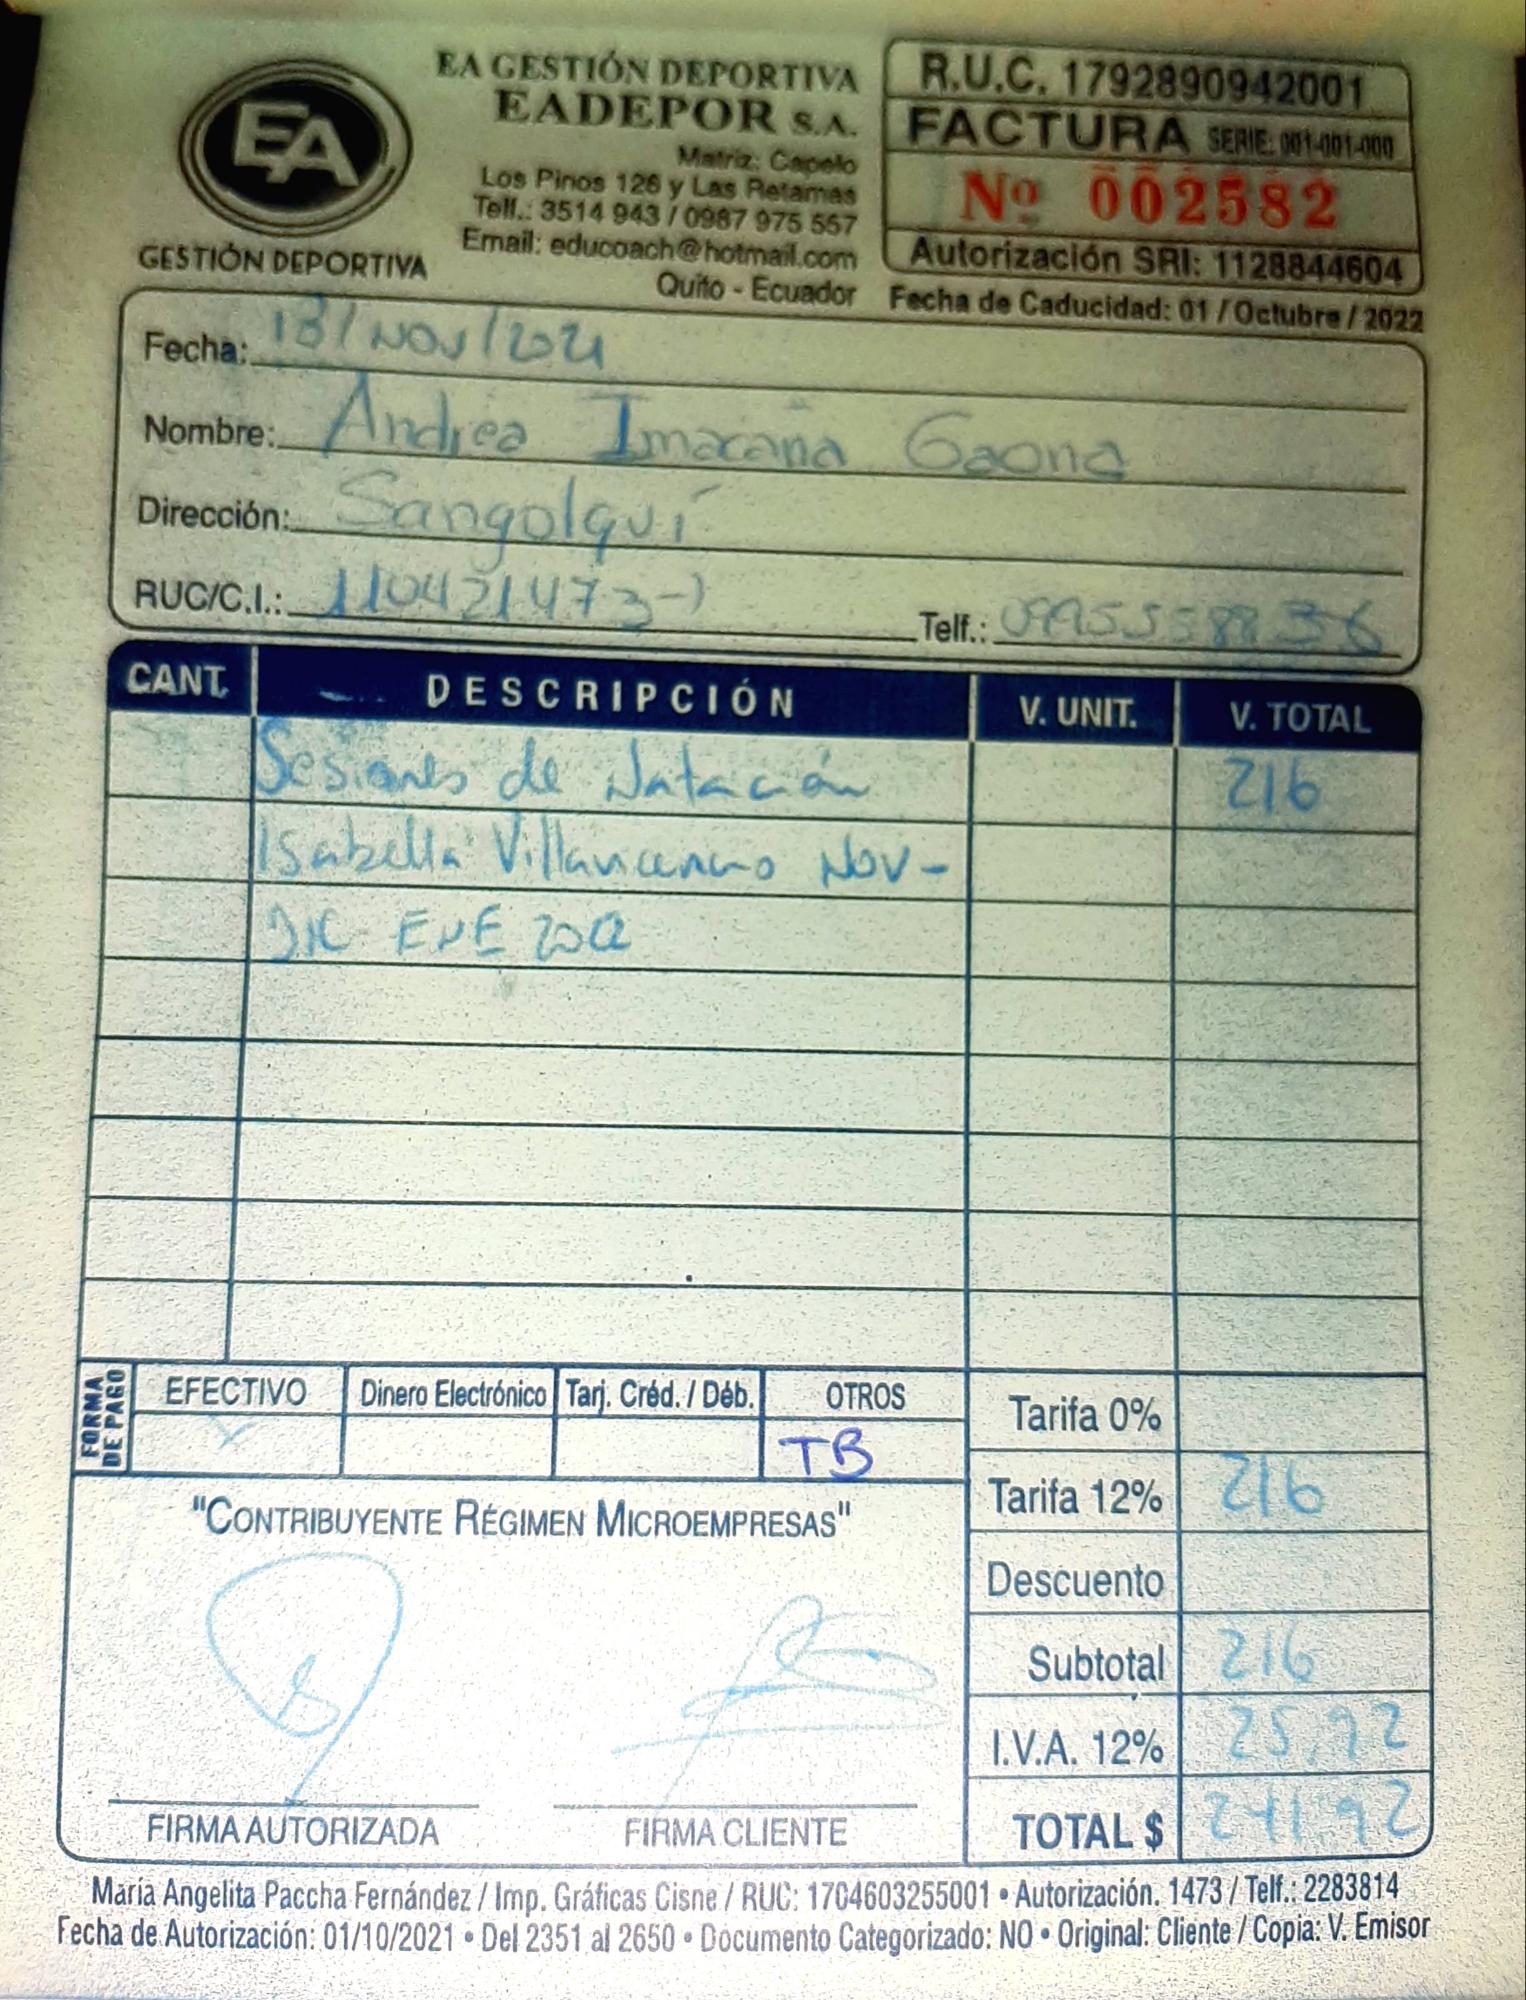 EA
GESTIÓN DEPORTIVA
EA GESTIÓN DEPORTIVA
EADEPOR S.A.
Matriz: Capelo
Los Pinos 126 y Las Retamas
Telf.: 3514 943 / 0987 975 557
Email: educoach@hotmail.com
Quito - Ecuador
R.U.C. 1792890942001
FACTURA SERIE: 001-001-000
Nº 002582
Autorización SRI: 1128844604
Fecha de Caducidad: 01 / Octubre / 2022
Fecha: 13/NOV/2021
Nombre: Andrea Imacaña Gaona
Dirección: Sangolquí
RUC/C.I.: 110421473-1
Telf.: 0995558836
CANT. DESCRIPCIÓN V. UNIT. V. TOTAL
Sesiones de Natación 216
Isabella Villavicencio NOV-
DIC ENE
FORMA DE PAGO
EFECTIVO Dinero Electrónico Tarj. Créd. / Déb. OTROS
TB
Tarifa 0%
Tarifa 12% 216
Descuento
Subtotal 216
I.V.A. 12% 25,92
TOTAL $ 241,92
"CONTRIBUYENTE RÉGIMEN MICROEMPRESAS"
FIRMA AUTORIZADA FIRMA CLIENTE
María Angelita Paccha Fernández / Imp. Gráficas Cisne / RUC: 1704603255001 • Autorización. 1473 / Telf.: 2283814
Fecha de Autorización: 01/10/2021 • Del 2351 al 2650 • Documento Categorizado: NO • Original: Cliente / Copia: V. Emisor